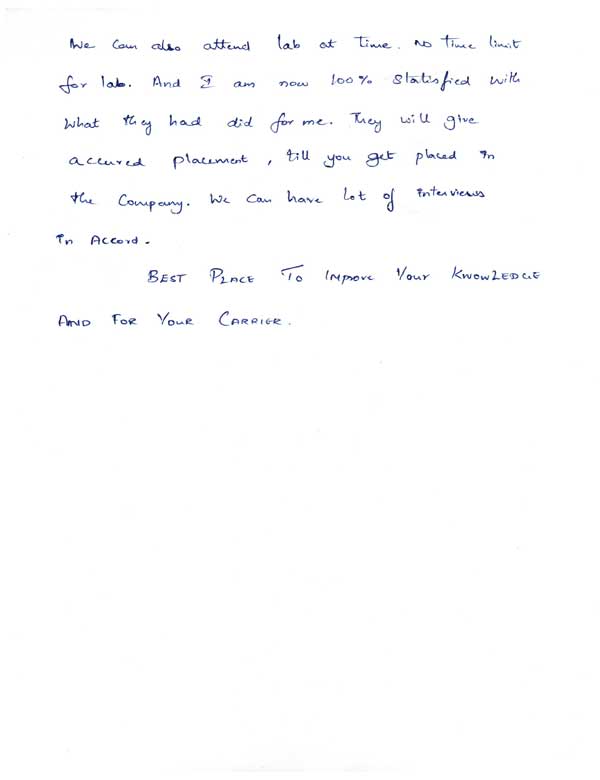 We can also attend lab at Time. No Time limit
for lab. And I am now 100% Statisfied with
what they had did for me. They will give
accured placement, till you get placed in
the Company. We can have Lot of interviews
in Accord.
BEST PLACE TO IMPROVE YOUR KNOWLEDGE
AND FOR YOUR CARRIER.